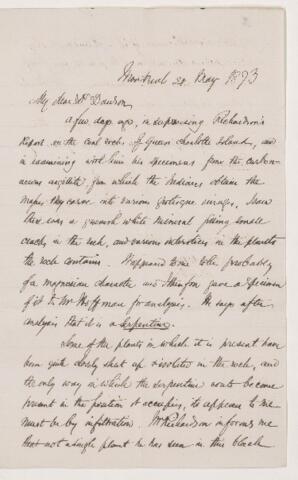 Montreal 20 May 1873
My dear Dr Dawson
A few days ago, in supervising Richardson's
Report on the coal rocks of Queen Charlotte Island, and
in examining with him his specimens from the carbon-
aceous argillite from which the Indians obtain the
they carve into various grotesque images, I saw
there was a greenish white mineral filling small
cracks in the rock, and various interstices in the plants
the rock contains. It appeared to me to be probably
of a magnesian character and I therefore gave a specimen
of it to Mr Hoffman for analysis. He says after
analysis that it is a serpentine.
Some of the plants in which it is present have
been quite closely shut up isolated in the rock, and
the only way in which the serpentine could become
present in the position it occupies, it appears to me
must be by infiltration. Mr Richardson informs me
that not a single plant he has seen in this black